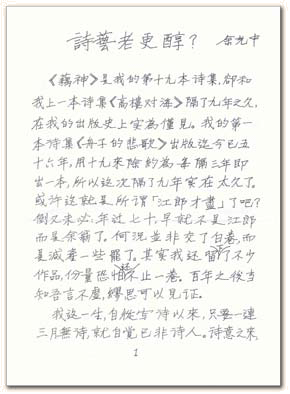 詩藝老更醇？ 余光中
《藕神》是我的第十九本詩集，卻和
我上一本詩集《高樓对海》隔了九年之久，
在我的出版史上实為僅見。我的第一
本詩集《舟子的悲歌》出版迄今已五
十六年，用十九來除約為每隔三年即
出一本，所以這次隔了九年实在太久了。
或許這就是所謂「江郎才盡」了吧？
倒又未必，年过七十，早就不是江郎
而是余籟了。何況並非交了白卷，而
是減產一些罷了。其实我还留下不少
作品，份量恐怕不止一卷。百年之後当
知吾言不虛，繆思可以見证。
我这一生，自從写詩以來，只要一連
三月無詩，就自覺已非詩人。詩意之來，
1